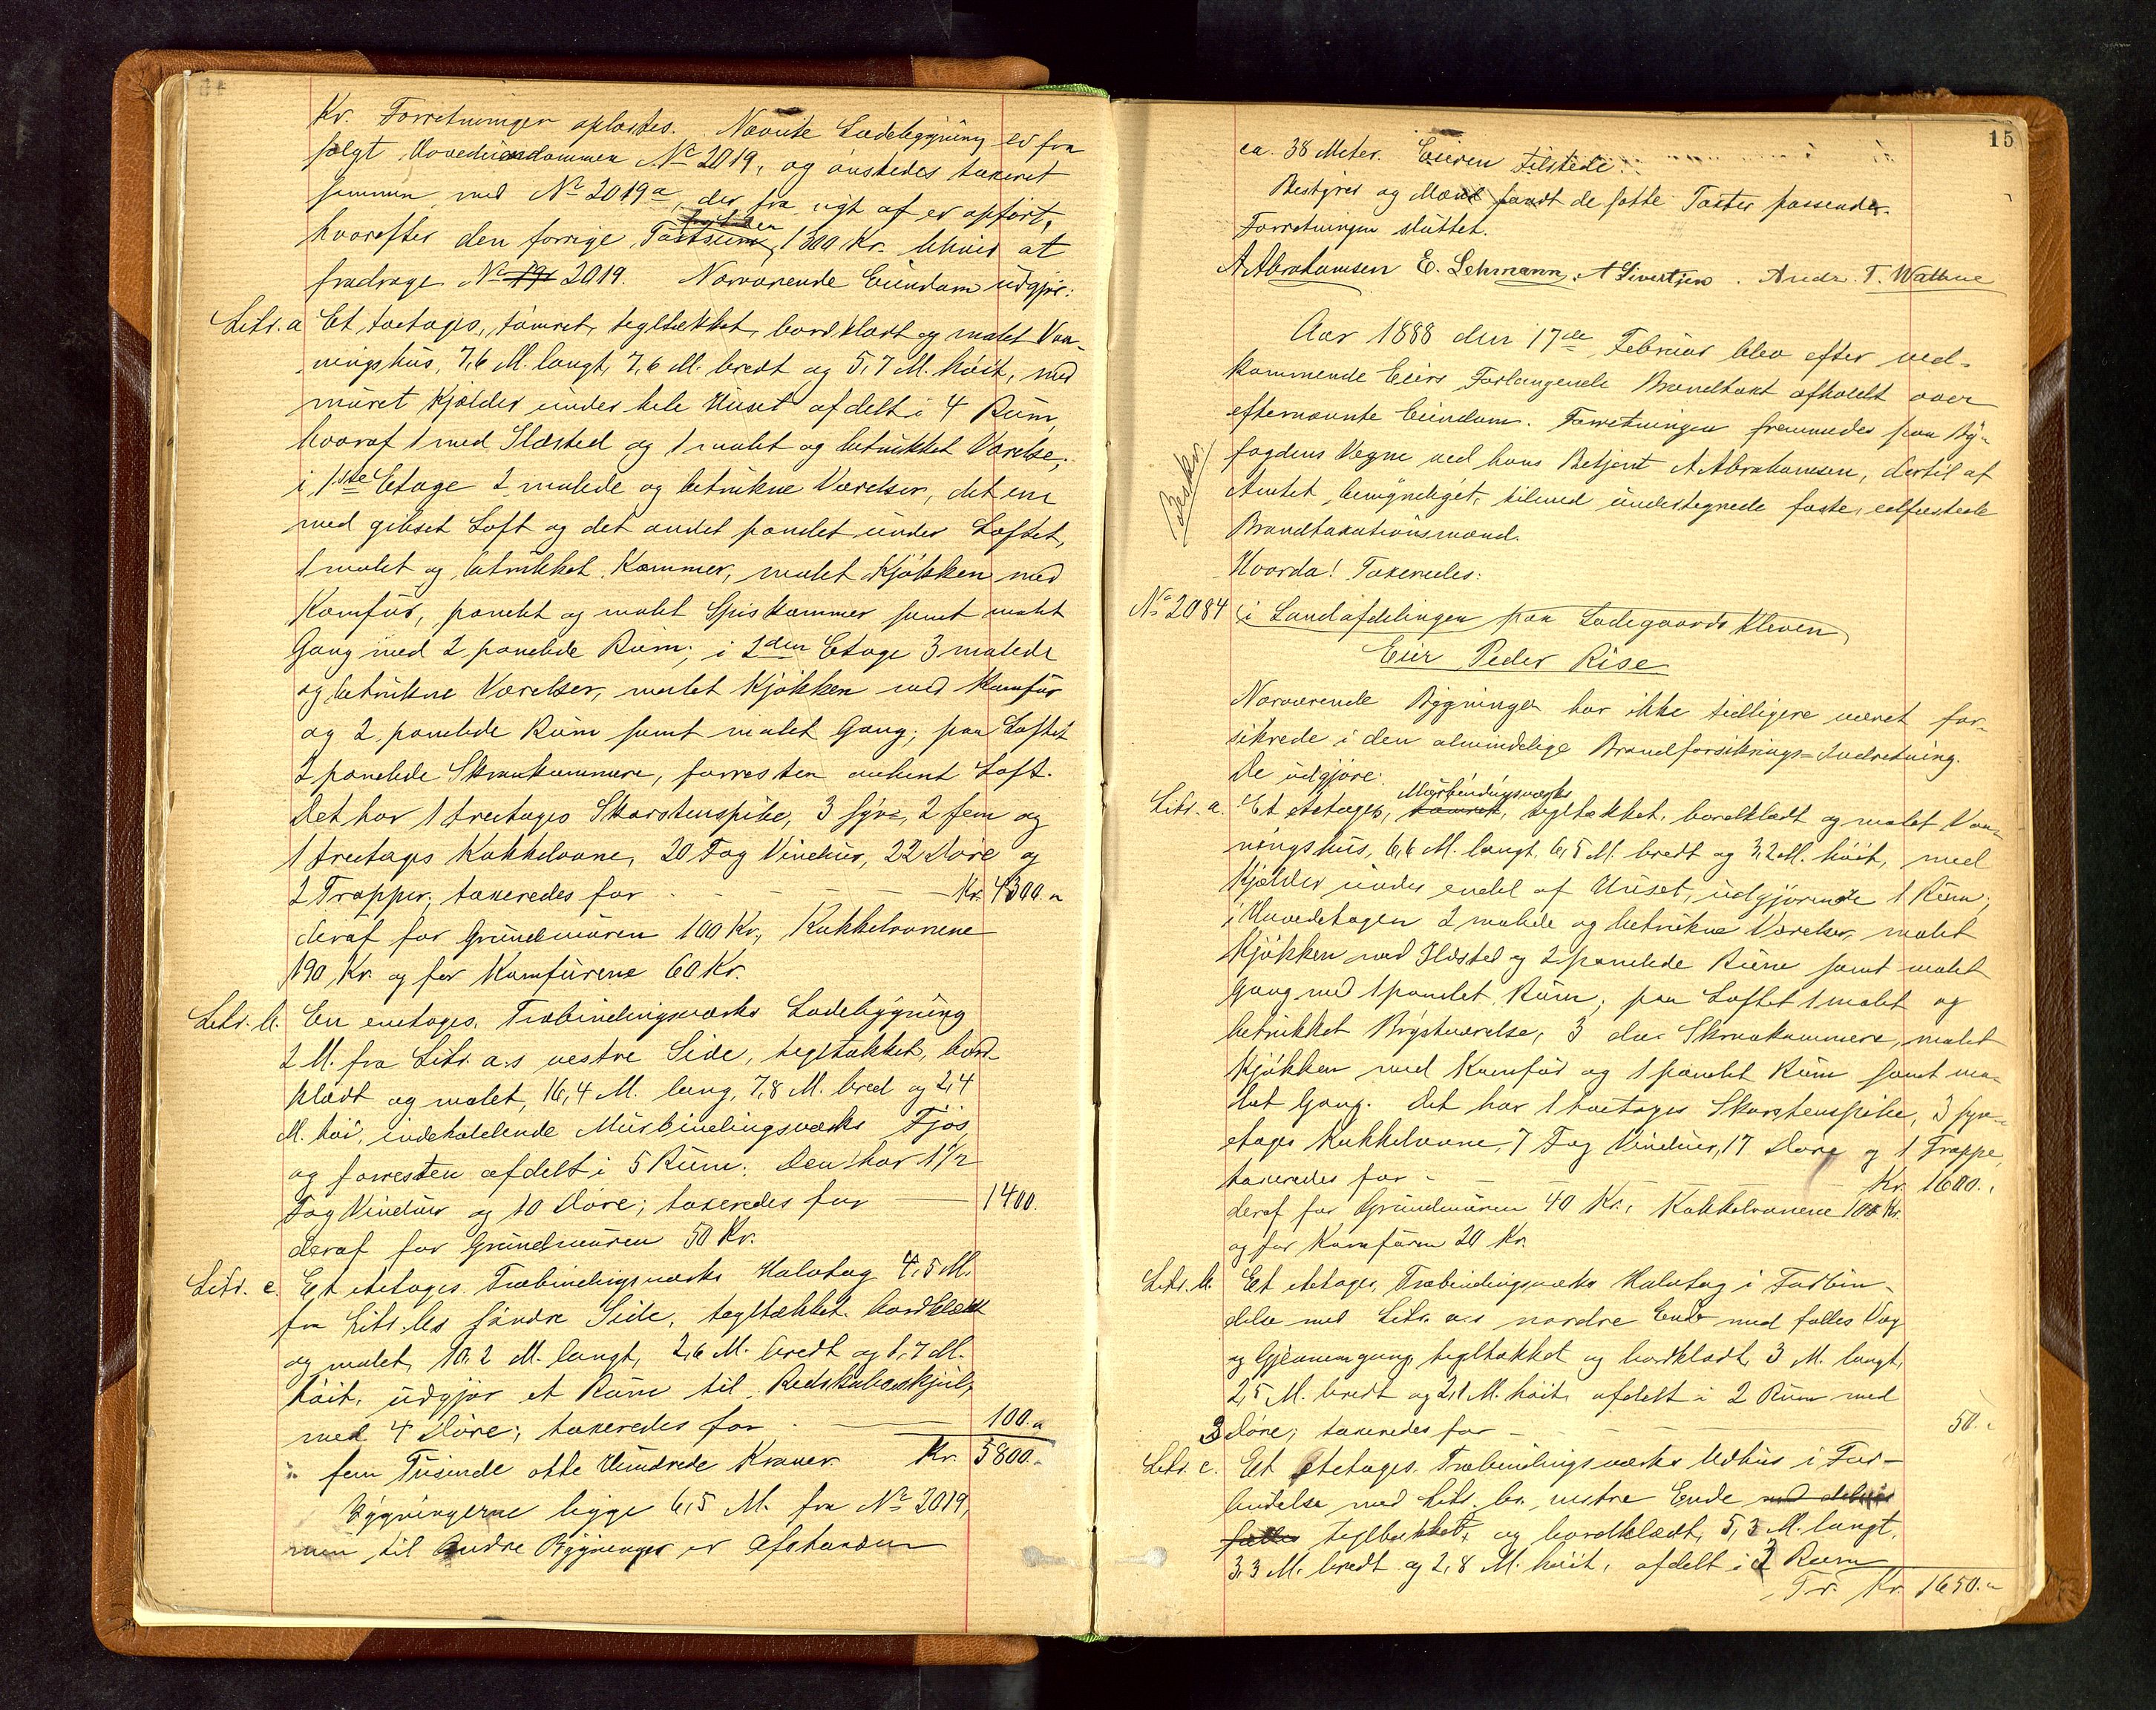 Kr. Forretningen oplæstes. Nævnte Ladebygning er fra
solgt Hovedeiendommen No 2019, og ønskedes taxeret
sammen med No 2019a, der fra nyt af er opført,
hvorefter den forrige Taxtsum, 1300 Kr. bliver at
fradrage No 19 2019. Nærværende Eiendom udgjør:
Litr. a Et toetages, tømret, tegltækket, bordklædt og malet Vaa-
ningshus, 7,6 M. langt, 7,6 M. bredt og 5,7 M. høit, med
muret Kjælder under hele Huset afdelt i 4 Rum,
hvoraf 1 med Ildsted og 1 malet og betrukket Værelse;
i 1ste Etage 2 malede og betrukne Værelser, det ene
med gibset Loft og det andet panelet under Loftet,
1 malet og betrukket Kammer, malet Kjøkken med
Komfur, panelet og malet Spiskammer samt malet
Gang med 2 panelede Rum; i 2den Etage 3 malede
og betrukne Værelser, malet Kjøkken med Komfur
og 2 panelede Rum samt malet Gang; paa Loftet
2 panelede Skraakammere, forresten aabent Loft.
Det har 1 treetages Skorstenspibe, 3 syv-, 2 fem og
1 treetages Kakkelovne, 20 Fag Vinduer, 22 Døre og
2 Trapper; taxeredes for - - - Kr. 4300.„
deraf for Grundmuren 100 Kr., Kakkelovnene
190 Kr. og for Komfurene 60 Kr.
Litr. b. En enetages, Træbindingsværks Ladebygning
2 M. fra Litr. a.s vestre Side, tegltækket, bord-
klædt og malet, 16,4 M. lang, 7,8 M. bred og 2,4
M. høi, indeholdende Murbindingsværks Fjøs
og forresten afdelt i 5 Rum. Den har 1 1/2
Fag Vinduer og 10 Døre; taxeredes for — 1400.
deraf for Grundmuren 50 Kr.
Litr. c. Et etetages Træbindingsværks Halvtag 4,5 M.
fra Litr. bs søndre Side, tegltækket, bordklædt
og malet, 10,2 M. langt, 2,6 M. bredt og 1,7 M.
høit, udgjør et Rum til Redskabsskjul,
med 4 Døre; taxeredes for — 100.„
fem Tusinde otte Hundrede Kroner Kr. 5800.„
Bygningerne ligge 6,5 M. fra No 2019,
men til andre Bygninger er Afstanden
15
ca. 38 Meter. Eieren tilstede.
Bestyrer og Mænd fandt de satte Taxter passende.
Forretningen sluttet.
A Abrahamsen E. Lehmann. A Sivertsen. Andr. T. Wathne
Aar 1888 den 17de Februar blev efter ved-
kommende Eiers Forlangende Brandtaxt afholdt over
efternævnte Eiendom. Forretningen fremmedes paa By-
Beskr.
fogdens Vegne ved hans Betjent A Abrahamsen, dertil af
Amtet bemyndiget, tilmed undertegnede faste, edfæstede
Brandtaxationsmænd.
Hvorda! Taxeredes:
No 2084 i Landafdelingen paa Ladegaards Kleven,
Eier Peder Rise
Nærværende Bygninger har ikke tidligere været for-
sikrede i den almindelige Brandforsikrings-Indretning.
De udgjøre:
Murbindingsværks
Litr. a. Et etetages, tømret, tegltækket, bordklædt og malet Vaa-
ningshus, 6,6 M. langt, 6,5 M. bredt og 3,2 M. høit, med
Kjælder under endel af Huset, udgjørende 1 Rum;
i Hovedetagen 2 malede og betrukne Værelser, malet
Kjøkken med Ildsted og 2 panelede Rum samt malet
Gang med 1 panelet Rum; paa Loftet 1 malet og
betrukket Brystværelse, 3 do. Skraakammere, malet
Kjøkken med Komfur og 1 panelet Rum samt ma-
let Gang. Det har 1 toetages Skorstenspibe, 3 syv-
etages Kakkelovne, 7 Fag Vinduer, 17 Døre og 1 Trappe,
taxeredes for - - - Kr. 1600.„
deraf for Grundmuren 40 Kr., Kakkelovnene 100 Kr.
og for Komfuren 20 Kr.
Litr. b. Et etetages, Træbindingsværks Halvtag i Forbin-
delse med Litr. a.s nordre Ende med fælles Væg
og Gjennemgang, tegltækket og bordklædt, 3 M. langt,
2,5 M. bredt og 2,1 M. høit, afdelt i 2 Rum med
3 Døre; taxeredes for — 50.„
Litr. c. Et etetages, Træbindingsværks Udhus i For-
bindelse med Litr. bs. vestre Ende med delvis
fælles tegltækket, og bordklædt, 5,3 M. langt,
3,3 M. bredt og 2,8 M. høit, afdelt i 3 Rum
Tr. Kr. 1650.„